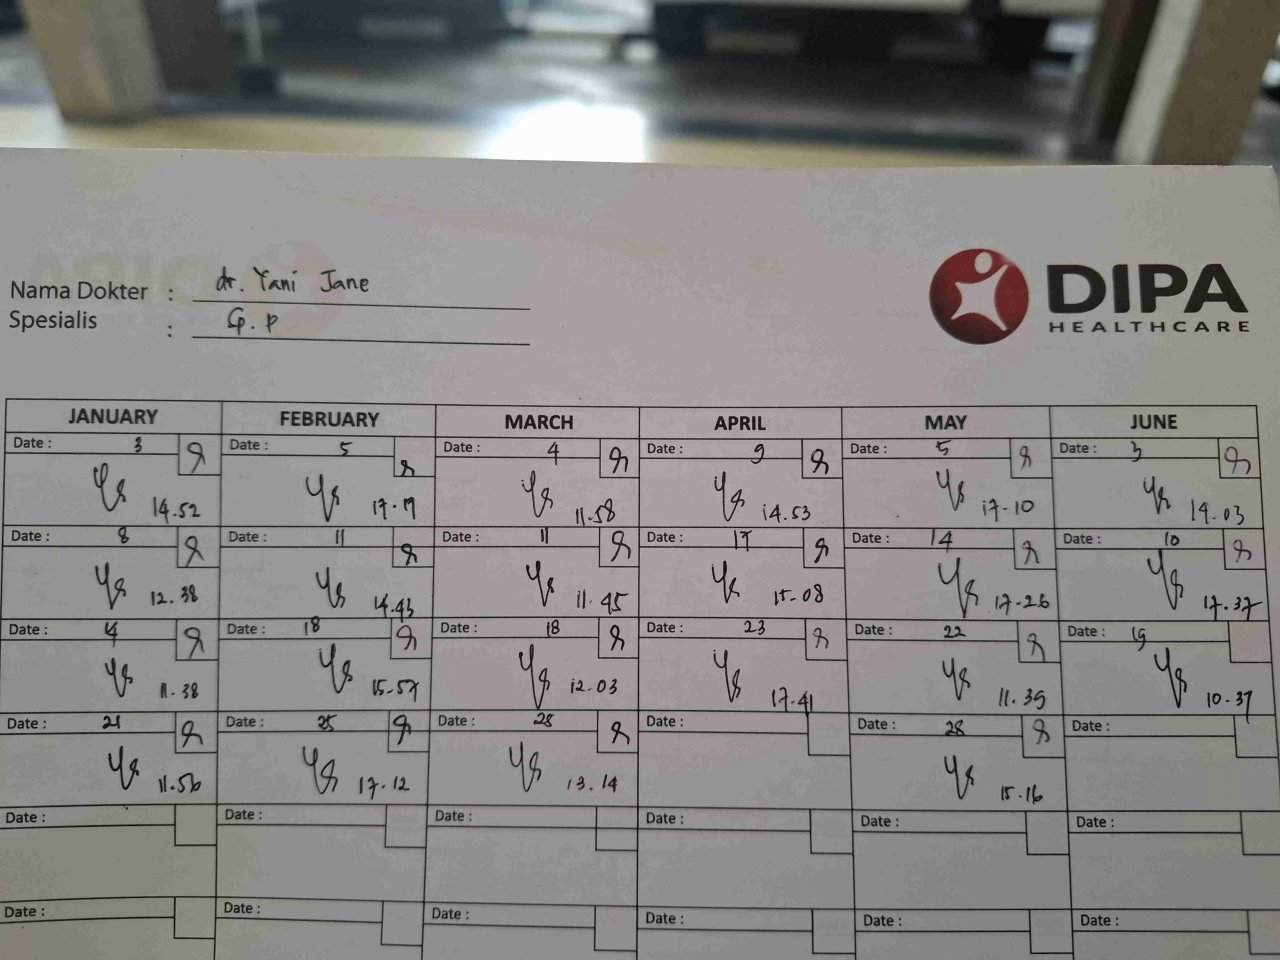 Nama Dokter : dr. Yani Jane
Spesialis : G.P
DIPA
HEALTHCARE
JANUARY FEBRUARY MARCH APRIL MAY JUNE
Date : 3 Date : 5 Date : 4 Date : 9 Date : 5 Date : 3
14.52 17.17 11.58 14.53 17-10 14.03
Date : 8 Date : 11 Date : 11 Date : 17 Date : 14 Date : 10
12.38 14.43 11.45 15-08 17-26 17.37
Date : 14 Date : 18 Date : 18 Date : 23 Date : 22 Date : 19
11.38 15-57 12.03 17.41 11.39 10.37
Date : 21 Date : 25 Date : 25 Date : Date : 28 Date :
11.56 17.12 13.14 15.16
Date : Date : Date : Date : Date : Date :
Date : Date : Date : Date : Date : Date :